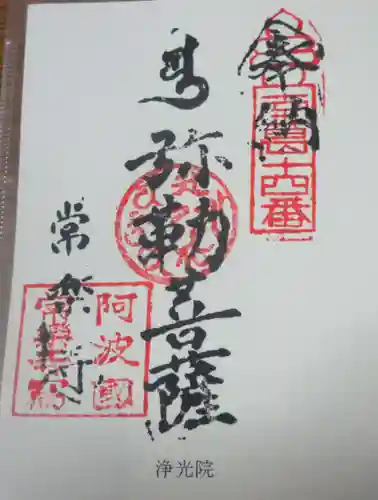 奉納
十四番
弥勒菩薩
常楽
阿波國
常樂寺
浄光院